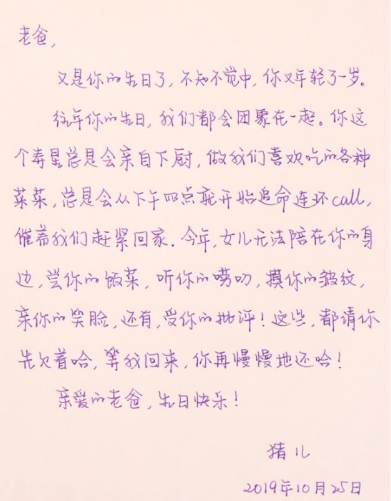 老爸，
又是你的生日了，不知不觉中，你又年轻了一岁。
往年你的生日，我们都会团聚在一起。你这
个寿星总是会亲自下厨，做我们喜欢吃的各种
菜菜，总是会从下午四点就开始追命连环call，
催着我们赶紧回家．今年，女儿无法陪在你的身
边，尝你的饭菜，听你的唠叨，摸你的皱纹，
亲你的笑脸，还有，受你的批评！这些，都请你
先欠着哈，等我回来，你再慢慢地还哈！
亲爱的老爸，生日快乐！
猪儿
2019年10月25日